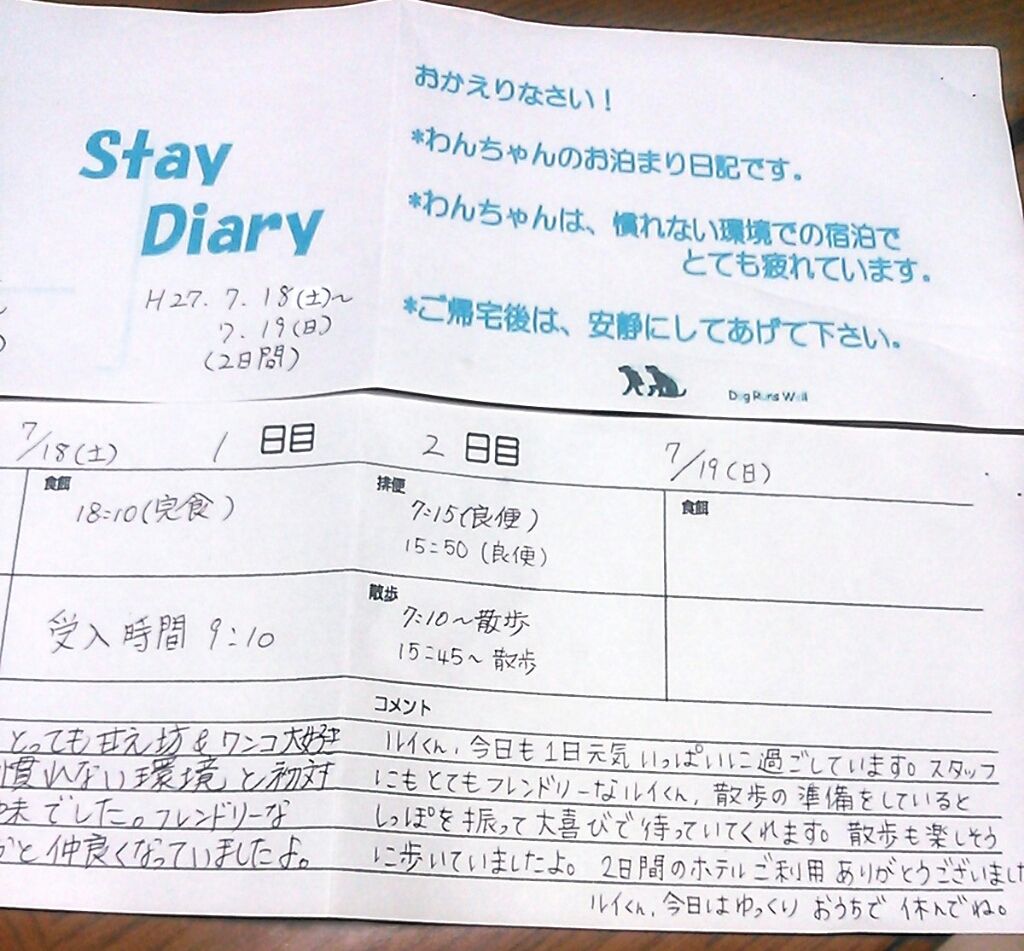 Stay
Diary
H27. 7. 18(土)～
7. 19(日)
(2日間)
おかえりなさい！
*わんちゃんのお泊まり日記です。
*わんちゃんは、慣れない環境での宿泊で
とても疲れています。
*ご帰宅後は、安静にしてあげて下さい。
Dog Runs Well
7/18(土) 1 日目
食餌
18:10(完食)
受入時間 9:10
とっても甘え坊&ワンコ大好き
慣れない環境と初対
でした。フレンドリーな
と仲良くなっていましたよ。
2 日目 7/19(日)
排便
7:15(良便)
15:50 (良便)
食餌
散歩
7:10～散歩
15:45～散歩
コメント
ルイくん、今日も1日元気いっぱいに過ごしています。スタッフ
にもとてもフレンドリーなルイくん、散歩の準備をしていると
しっぽを振って大喜びで待っていてくれます。散歩も楽しそう
に歩いていましたよ。2日間のホテルご利用ありがとうございました
ルイくん、今日はゆっくりおうちで休んでね。